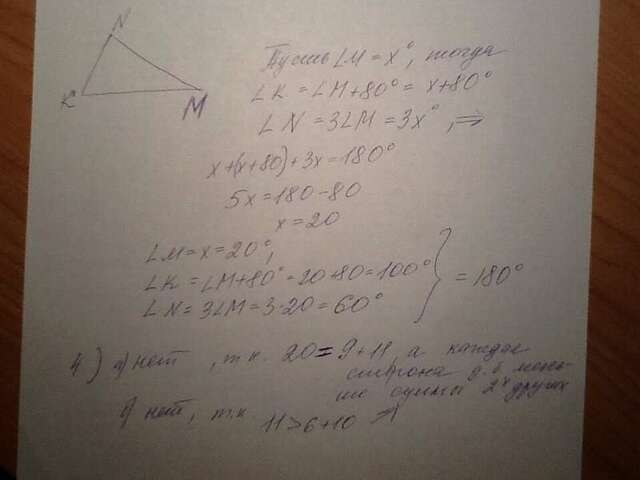 N
K
M
Пусть ∠M = x°, тогда
∠K = ∠M+80° = x+80°
∠N = 3∠M = 3x°, ⇒
x+(x+80)+3x=180°
5x=180-80
x=20
∠M=x=20°,
∠K=∠M+80°=20+80=100°
∠N=3∠M=3·20=60°
} = 180°
4) а) нет, т.к. 20=9+11, а каждая
сторона д.б. мень-
ше суммы 2х других
б) нет, т.к. 11>6+10 ⇒